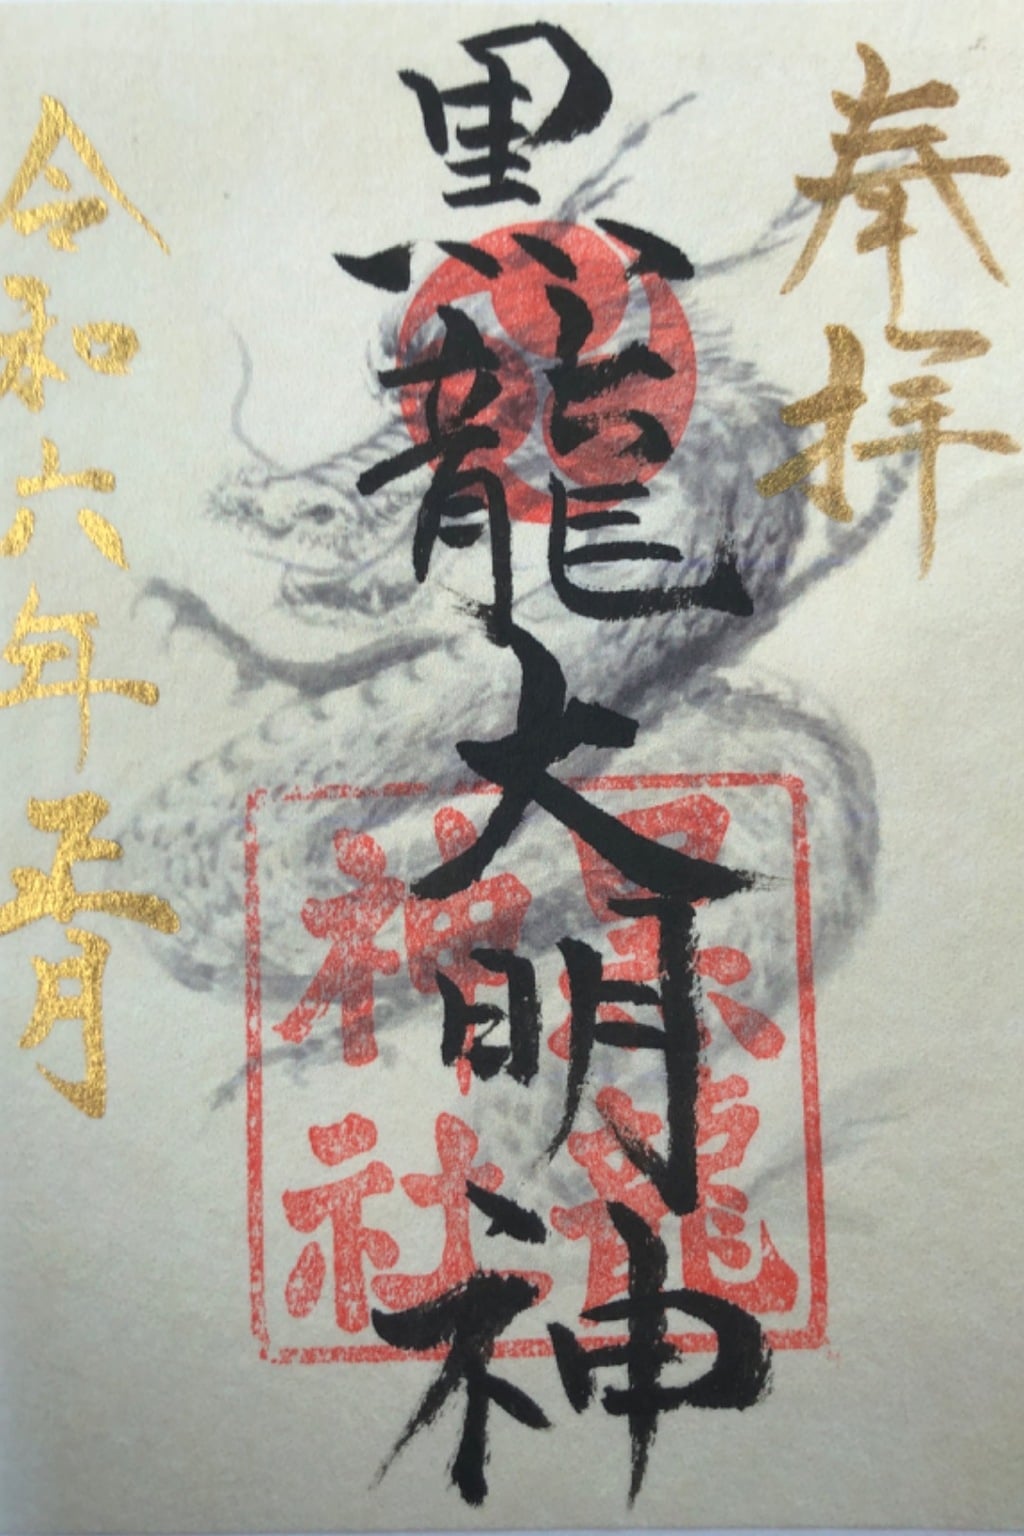 奉拝
黒龍大明神
黒龍
神社
令和六年正月